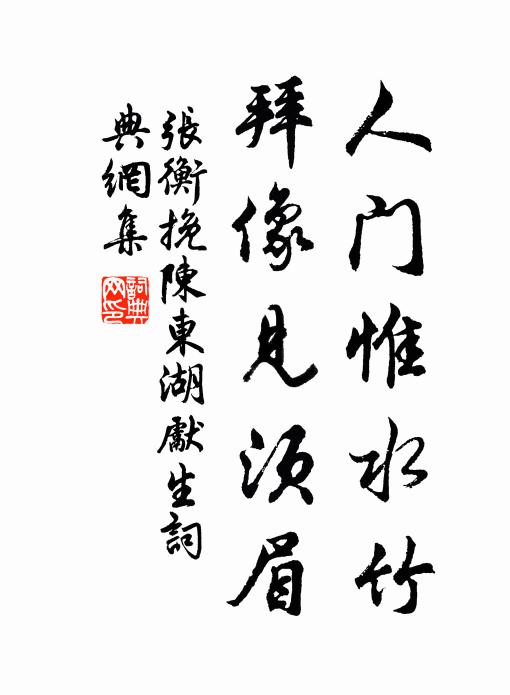 人門惟水竹
拜像見須眉
張衡挽陳東湖獻生詞
典網集
詞典
网印